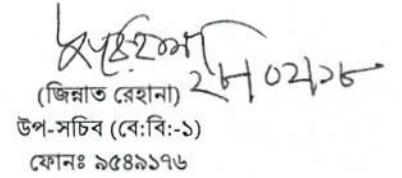 ২৮/০২/১৮
(জিন্নাত রেহানা)
উপ-সচিব (বে:বি:-১)
ফোনঃ ৯৫৪৯১৭৬